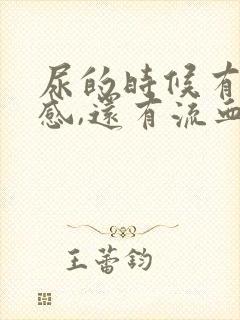 尿的時候有
感,還有流血
王蕾鈞